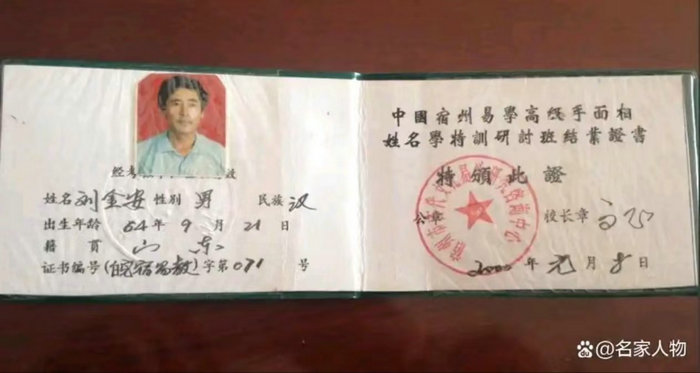 姓名 刘金安 性别 男 民族 汉
出生年龄 64 年 9 月 21 日
籍贯 山东
证书编号(皖宿易教)字第 071 号
中國宿州易學高级手面相
姓名學特訓研討班結業證書
特頒此證
公章 校长章
2000 年 元 月 8 日
@名家人物